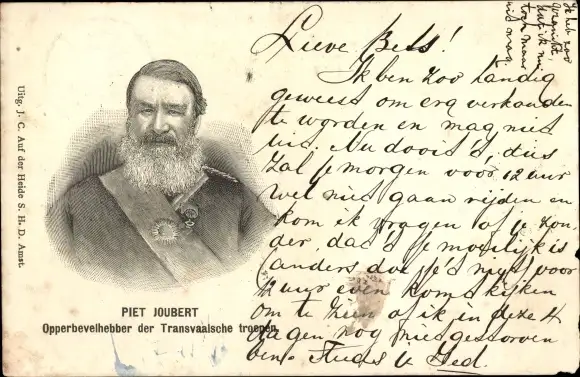 Uitg. J. C. Auf der Heide S. H. D. Amst
PIET JOUBERT
Opperbevelhebber der Transvaalsche troepen.
Lieve Bels!
Ik ben zoo handig
geweest om erg verkouden
te worden en mag niet
uit. Nu dooit 's, dus
zal je morgen voor 12 uur
wel niet gaan rijden en
kom ik vragen of je zon-
der, dat 's je moeilijk is
(anders doe je 's niet) voor
12 uur even komt kijken
om te zien of ik in deze 4
dagen nog niet gestorven
ben.
je Ged.
Ik heb zoo
dat ik nu
toch maar
niet mag.